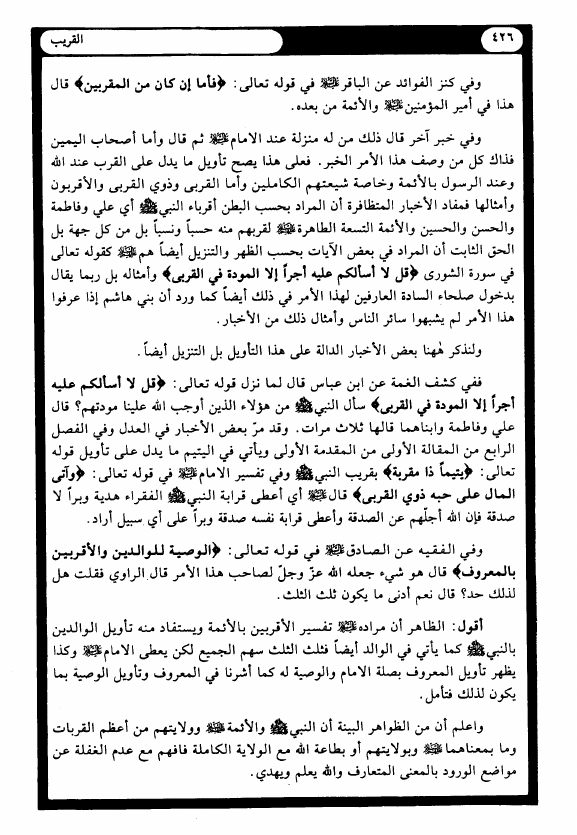 ٤٢٦
القريب
وفي كنز الفوائد عن الباقر في قوله تعالى: ﴿فأما إن كان من المقربين﴾ قال
هذا في أمير المؤمنين والأئمة من بعده.
وفي خبر آخر قال ذلك من له منزلة عند الامام ثم قال وأما أصحاب اليمين
فذاك كل من وصف هذا الأمر الخبر. فعلى هذا يصح تأويل ما يدل على القرب عند الله
وعند الرسول بالأئمة وخاصة شيعتهم الكاملين وأما القربى وذوي القربى والأقربون
وأمثالها فمفاد الأخبار المتظافرة أن المراد بحسب البطن أقرباء النبي ﷺ أي علي وفاطمة
والحسن والحسين والأئمة التسعة الطاهرة لقربهم منه حسباً ونسباً بل من كل جهة بل
الحق الثابت أن المراد في بعض الآيات بحسب الظهر والتنزيل أيضاً هم كقوله تعالى
في سورة الشورى ﴿قل لا أسألكم عليه أجراً إلا المودة في القربى﴾ وأمثاله بل ربما يقال
بدخول صلحاء السادة العارفين لهذا الأمر في ذلك أيضاً كما ورد أن بني هاشم إذا عرفوا
هذا الأمر لم يشبهوا سائر الناس وأمثال ذلك من الأخبار.
ولنذكر هٰهنا بعض الأخبار الدالة على هذا التأويل بل التنزيل أيضاً.
ففي كشف الغمة عن ابن عباس قال لما نزل قوله تعالى: ﴿قل لا أسألكم عليه
أجراً إلا المودة في القربى﴾ سأل النبي ﷺ من هؤلاء الذين أوجب الله علينا مودتهم؟ قال
علي وفاطمة وابناهما قالها ثلاث مرات. وقد مرّ بعض الأخبار في العدل وفي الفصل
الرابع من المقالة الأولى من المقدمة الأولى ويأتي في اليتيم ما يدل على تأويل قوله
تعالى: ﴿يتيماً ذا مقربة﴾ بقريب النبي ﷺ وفي تفسير الامام في قوله تعالى: ﴿وآتى
المال على حبه ذوي القربى﴾ قال أي أعطى قرابة النبي ﷺ الفقراء هدية وبراً لا
صدقة فإن الله أجلّهم عن الصدقة وأعطى قرابة نفسه صدقة وبراً على أي سبيل أراد.
وفي الفقيه عن الصادق في قوله تعالى: ﴿الوصية للوالدين والأقربين
بالمعروف﴾ قال هو شيء جعله الله عزّ وجلّ لصاحب هذا الأمر قال الراوي فقلت هل
لذلك حد؟ قال نعم أدنى ما يكون ثلث الثلث.
أقول: الظاهر أن مراده تفسير الأقربين بالأئمة ويستفاد منه تأويل الوالدين
بالنبي ﷺ كما يأتي في الوالد أيضاً فثلث الثلث سهم الجميع لكن يعطى الامام وكذا
يظهر تأويل المعروف بصلة الامام والوصية له كما أشرنا في المعروف وتأويل الوصية بما
يكون لذلك فتأمل.
واعلم أن من الظواهر البينة أن النبي ﷺ والأئمة وولايتهم من أعظم القربات
وما بمعناهما وبولايتهم أو بطاعة الله مع الولاية الكاملة فافهم مع عدم الغفلة عن
مواضع الورود بالمعنى المتعارف والله يعلم ويهدي.